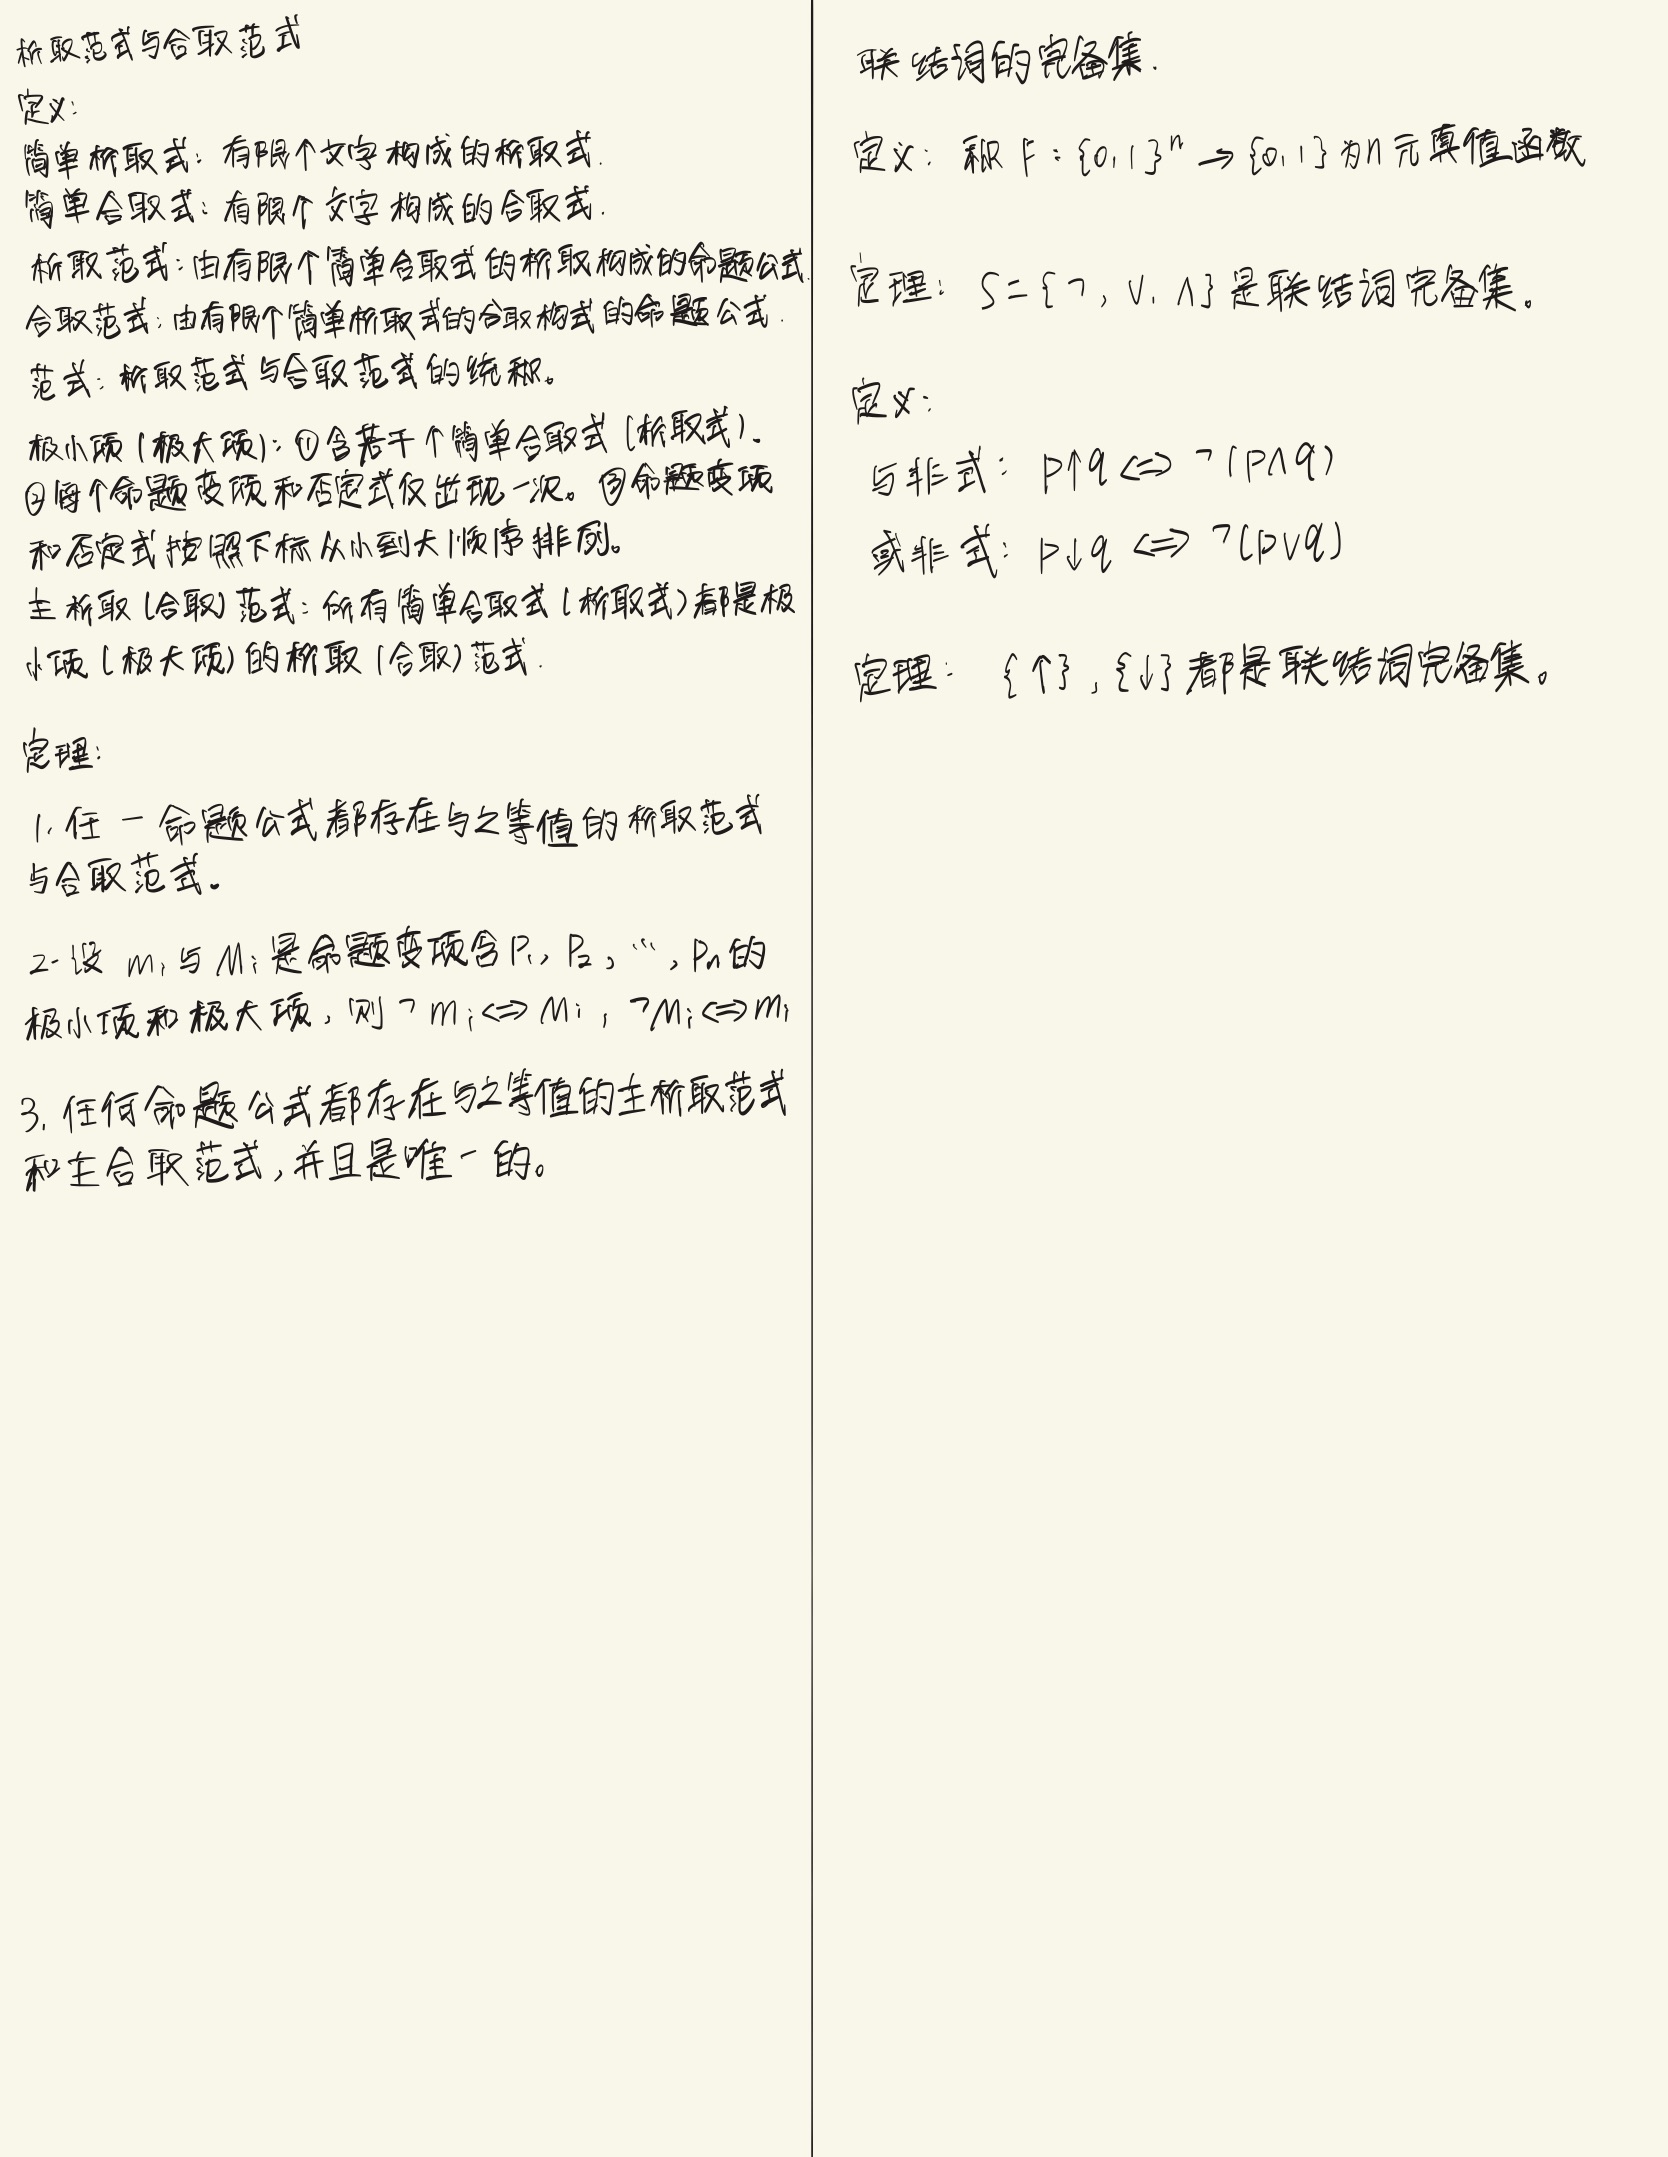 析取范式与合取范式
定义:
简单析取式: 有限个文字构成的析取式.
简单合取式: 有限个文字构成的合取式.
析取范式: 由有限个简单合取式的析取构成的命题公式.
合取范式: 由有限个简单析取式的合取构式的命题公式.
范式: 析取范式与合取范式的统称。
极小项(极大项): ①含若干个简单合取式(析取式).
②每个命题变项和否定式仅出现一次。③命题变项
和否定式按照下标从小到大顺序排列。
主析取(合取)范式: 所有简单合取式(析取式)都是极
小项(极大项)的析取(合取)范式.
定理:
1. 任一命题公式都存在与之等值的析取范式
与合取范式。
2. 设 mᵢ 与 Mᵢ 是命题变项含 P₁, P₂, ..., Pₙ 的
极小项和极大项, 则 ¬mᵢ <=> Mᵢ, ¬Mᵢ <=> mᵢ
3. 任何命题公式都存在与之等值的主析取范式
和主合取范式, 并且是唯一的。
联结词的完备集.
定义: 称 F: {0,1}ⁿ → {0,1} 为n元真值函数
定理: S = {¬, ∨, ∧} 是联结词完备集。
定义:
与非式: p↑q <=> ¬(p∧q)
或非式: p↓q <=> ¬(p∨q)
定理: {↑}, {↓} 都是联结词完备集。